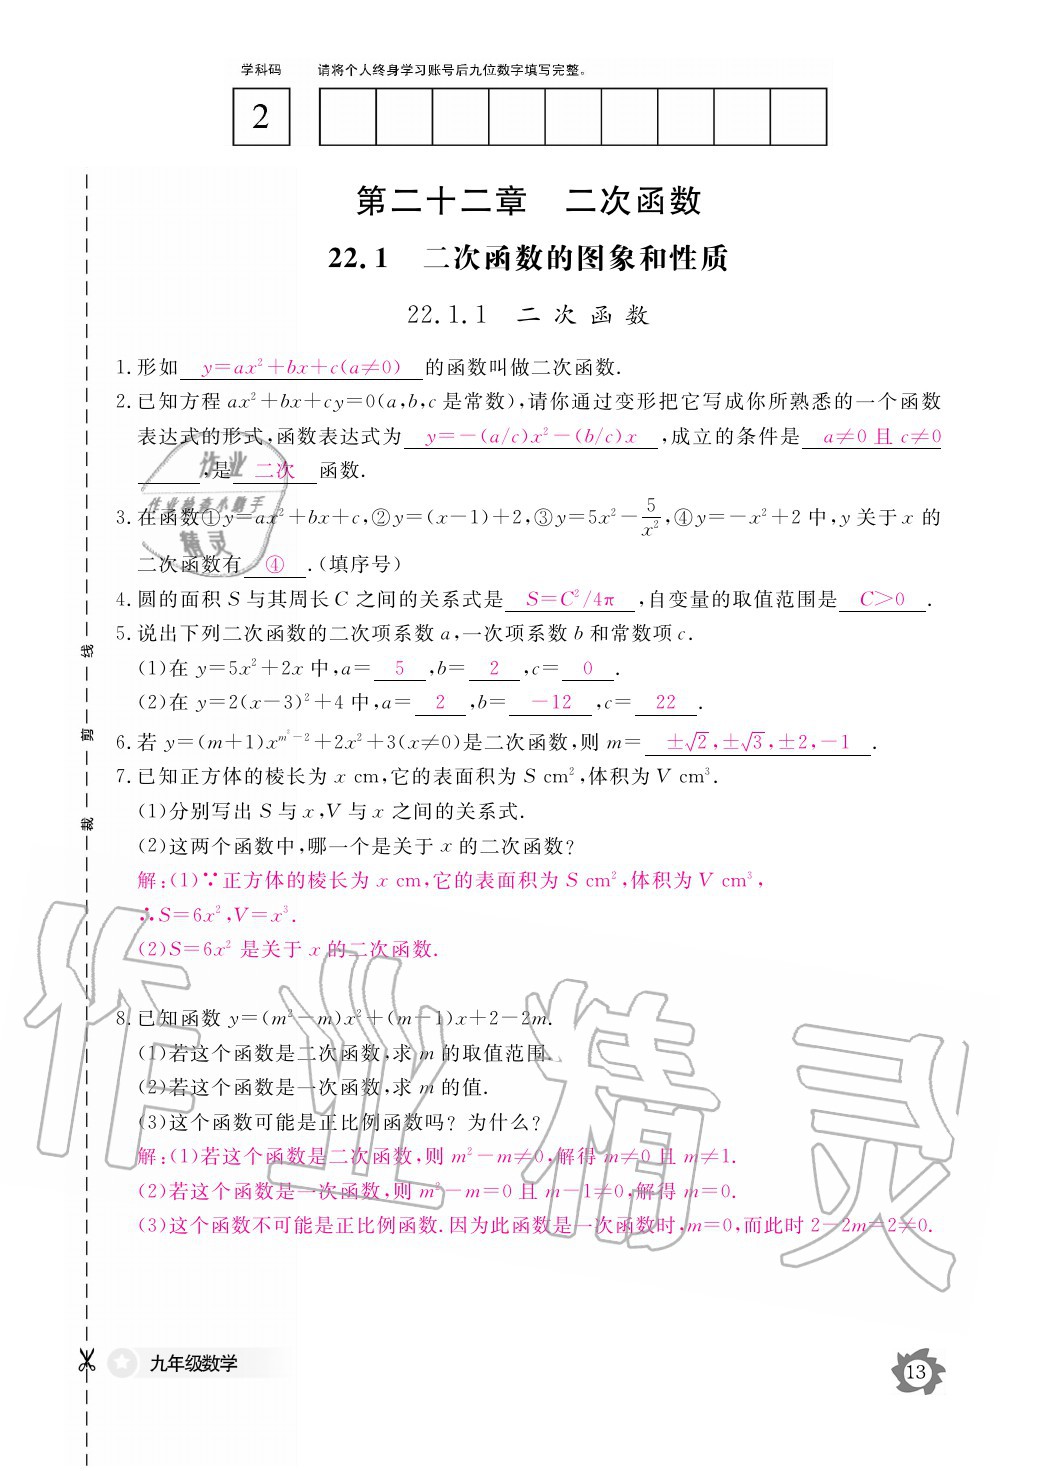 学科码 请将个人终身学习账号后九位数字填写完整。
2
第二十二章 二次函数
22.1 二次函数的图象和性质
22.1.1 二次函数
1.形如 y=ax²+bx+c(a≠0) 的函数叫做二次函数.
2.已知方程 ax²+bx+cy=0(a,b,c 是常数),请你通过变形把它写成你所熟悉的一个函数
表达式的形式,函数表达式为 y=-(a/c)x²-(b/c)x ,成立的条件是 a≠0 且 c≠0
,是 二次 函数.
3.在函数①y=ax²+bx+c,②y=(x-1)+2,③y=5x²-5/x²,④y=-x²+2 中,y 关于 x 的
二次函数有 ④ .(填序号)
4.圆的面积 S 与其周长 C 之间的关系式是 S=C²/4π ,自变量的取值范围是 C>0 .
5.说出下列二次函数的二次项系数 a,一次项系数 b 和常数项 c.
(1)在 y=5x²+2x 中,a= 5 ,b= 2 ,c= 0 .
(2)在 y=2(x-3)²+4 中,a= 2 ,b= -12 ,c= 22 .
6.若 y=(m+1)x^(m²-2)+2x²+3(x≠0)是二次函数,则 m= ±√2,±√3,±2,-1 .
7.已知正方体的棱长为 x cm,它的表面积为 S cm²,体积为 V cm³.
(1)分别写出 S 与 x,V 与 x 之间的关系式.
(2)这两个函数中,哪一个是关于 x 的二次函数?
解:(1)∵正方体的棱长为 x cm,它的表面积为 S cm²,体积为 V cm³,
∴S=6x²,V=x³.
(2)S=6x² 是关于 x 的二次函数.
8.已知函数 y=(m²-m)x²+(m-1)x+2-2m.
(1)若这个函数是二次函数,求 m 的取值范围.
(2)若这个函数是一次函数,求 m 的值.
(3)这个函数可能是正比例函数吗? 为什么?
解:(1)若这个函数是二次函数,则 m²-m≠0,解得 m≠0 且 m≠1.
(2)若这个函数是一次函数,则 m²-m=0 且 m-1≠0,解得 m=0.
(3)这个函数不可能是正比例函数.因为此函数是一次函数时,m=0,而此时 2-2m=2≠0.
线
剪
裁
作业
作业检查小助手
精灵
作业精灵
九年级数学
13